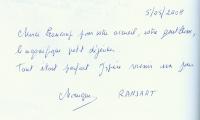 5/05/2008
Merci beaucoup pour votre accueil, votre gentillesse,
le magnifique petit déjeuner.
Tout était parfait. J'espère revenir un jour
Monique RANSART